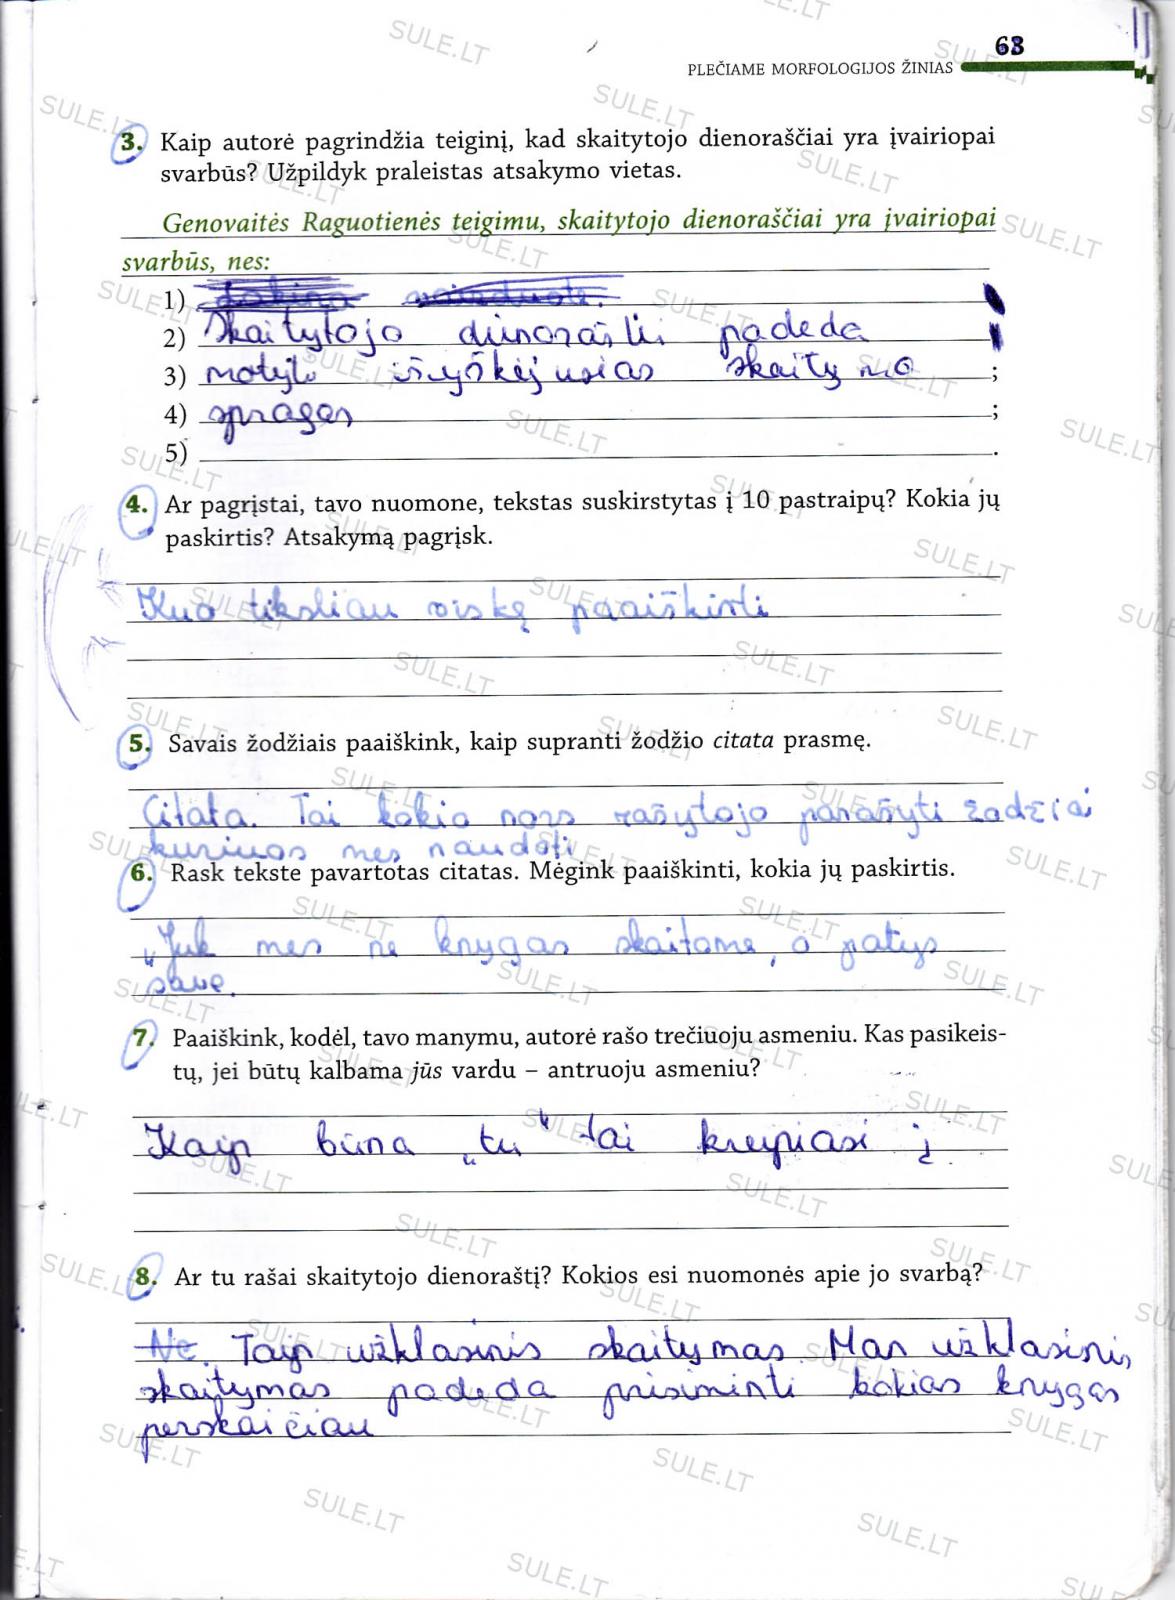 63
PLEČIAME MORFOLOGIJOS ŽINIAS
3. Kaip autorė pagrindžia teiginį, kad skaitytojo dienoraščiai yra įvairiopai
svarbūs? Užpildyk praleistas atsakymo vietas.
Genovaitės Raguotienės teigimu, skaitytojo dienoraščiai yra įvairiopai
svarbūs, nes:
1)
2) Skaitytojo padeda
3) skaitymo ;
4) spragas ;
5) .
4. Ar pagrįstai, tavo nuomone, tekstas suskirstytas į 10 pastraipų? Kokia jų
paskirtis? Atsakymą pagrįsk.
Kuo tiksliau viską paaiškinti
5. Savais žodžiais paaiškink, kaip supranti žodžio citata prasmę.
Citata. Tai kokia nors rašytojo parašyti žodžiai
kuriuos mes naudoti
6. Rask tekste pavartotas citatas. Mėgink paaiškinti, kokia jų paskirtis.
„Juk mes ne knygas skaitome, o patys
save.
7. Paaiškink, kodėl, tavo manymu, autorė rašo trečiuoju asmeniu. Kas pasikeis-
tų, jei būtų kalbama jūs vardu – antruoju asmeniu?
Kaip būna „tu“ tai krepiasi į
8. Ar tu rašai skaitytojo dienoraštį? Kokios esi nuomonės apie jo svarbą?
Ne. Taip užklasinis skaitymas. Man užklasinis
skaitymas padeda prisiminti kokias knygas
perskaičiau
SULE.LT